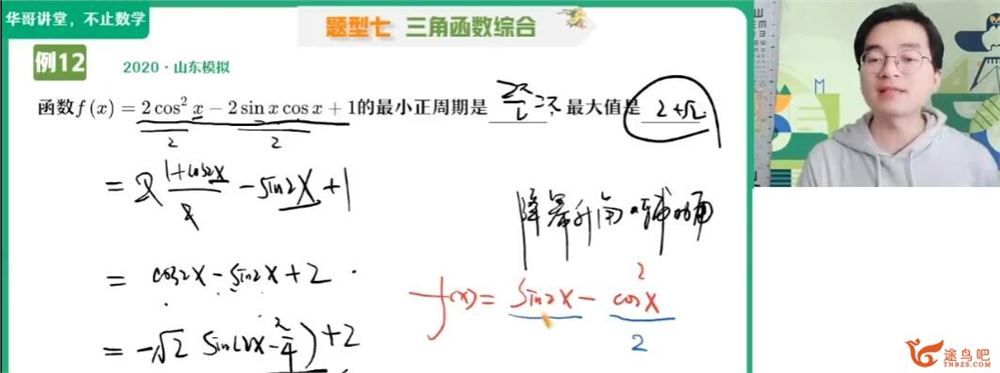 华哥讲堂，不止数学
题型七 三角函数综合
例12 2020·山东模拟
函数f(x)=2cos²x−2sinxcosx+1的最小正周期是 2π/2=π, 最大值是 2+√2
2 2
=2 (1+cos2x)/2 −sin2x+1
降幂升角
=cos2x−sin2x+2
f(x)=sin2x−cos²x
2
=−√2 sin(2x−π/4)+2
途鸟吧
TNBZS.COM